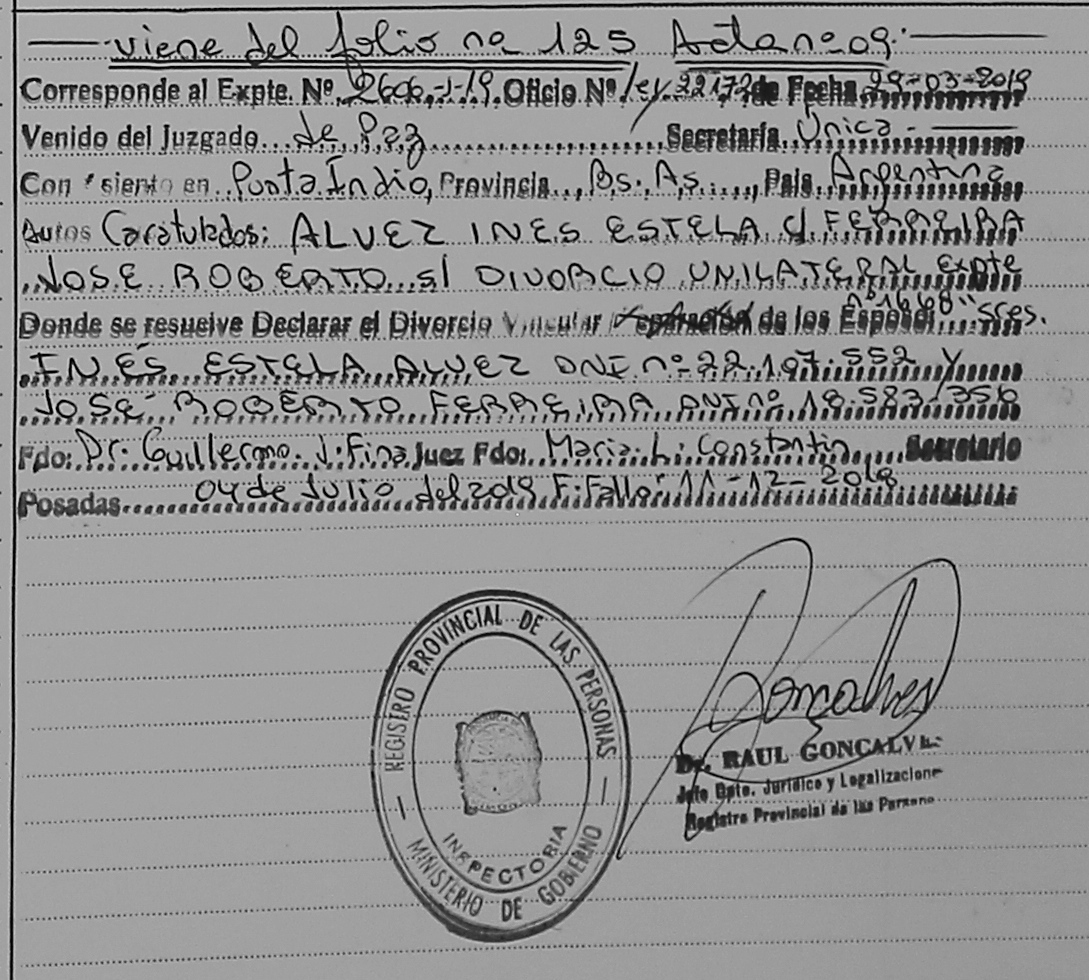 viene del folio nº 125 Acta nº 09.
Corresponde al Expte. Nº 2606-J-19. Oficio Nº ley 22172 de Fecha 29-03-2019
Venido del Juzgado de Paz Secretaría Única.-
Con siento en Punta Indio, Provincia Bs. As. País Argentina
Autos Caratulados: ALVEZ INES ESTELA c/ FERREIRA
JOSE ROBERTO s/ DIVORCIO UNILATERAL Expte
nº 1668" sres.
Donde se resuelve Declarar el Divorcio Vincular de los Esposos
INÉS ESTELA ALVEZ DNI nº 22.197.552 y
JOSÉ ROBERTO FERREIRA DNI nº 18.583/356
Fdo: Dr. Guillermo. J. Fina Juez Fdo: Maria. L. Constantin Secretario
Posadas 04 de Julio del 2019 F. Fallo: 11-12-2018
REGISTRO PROVINCIAL DE LAS PERSONAS
INSPECTORIA
MINISTERIO DE GOBIERNO
Goncalves
Dr. RAUL GONCALVES
Jefe Dpto. Jurídico y Legalizacione
Registro Provincial de las Persona